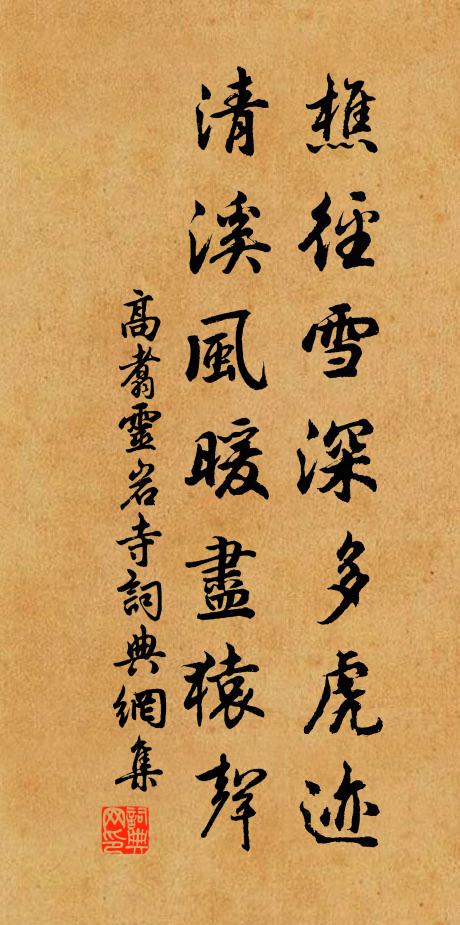 樵徑雪深多虎迹
清溪風暖盡猿聲
高翥靈岩寺詞典網集
詞典网印